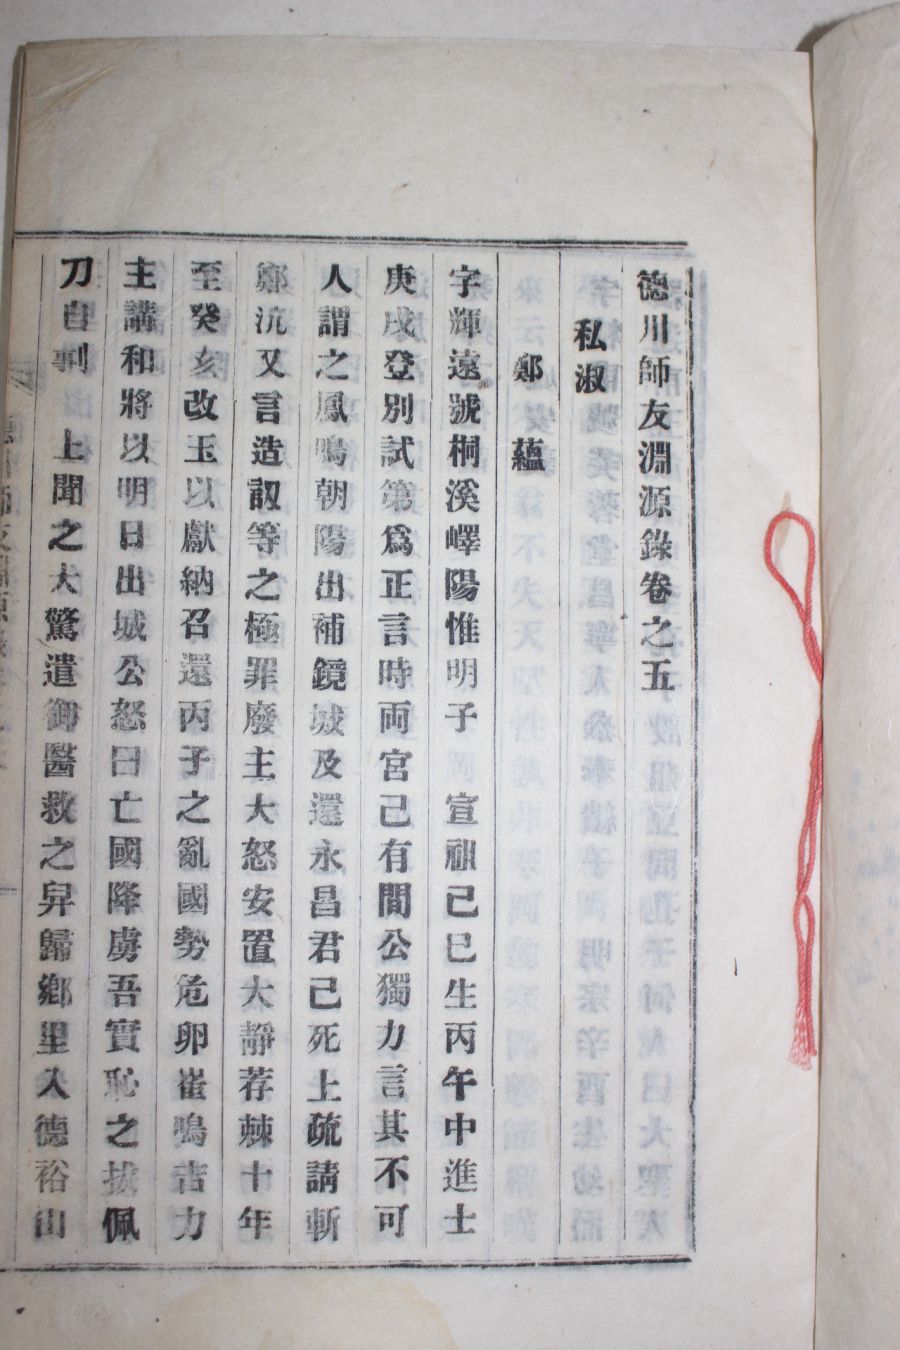 德川師友淵源錄卷之五
私淑
鄭蘊
字輝遠號桐溪嶧陽惟明子 宣祖己巳生丙午中進士
庚戌登別試第爲正言時両宮已有間公獨力言其不可
人謂之鳳鳴朝陽出補鏡城及還永昌君已死上疏請斬
鄭沆又言造訒等之極罪廢主大怒安置大靜荐棘十年
至癸亥改玉以獻納召還丙子之亂國勢危卵崔鳴吉力
主講和將以明日出城公怒曰亡國降虜吾實恥之拔佩
刀自剚 上聞之大驚遣御醫救之舁歸鄕里入德裕山